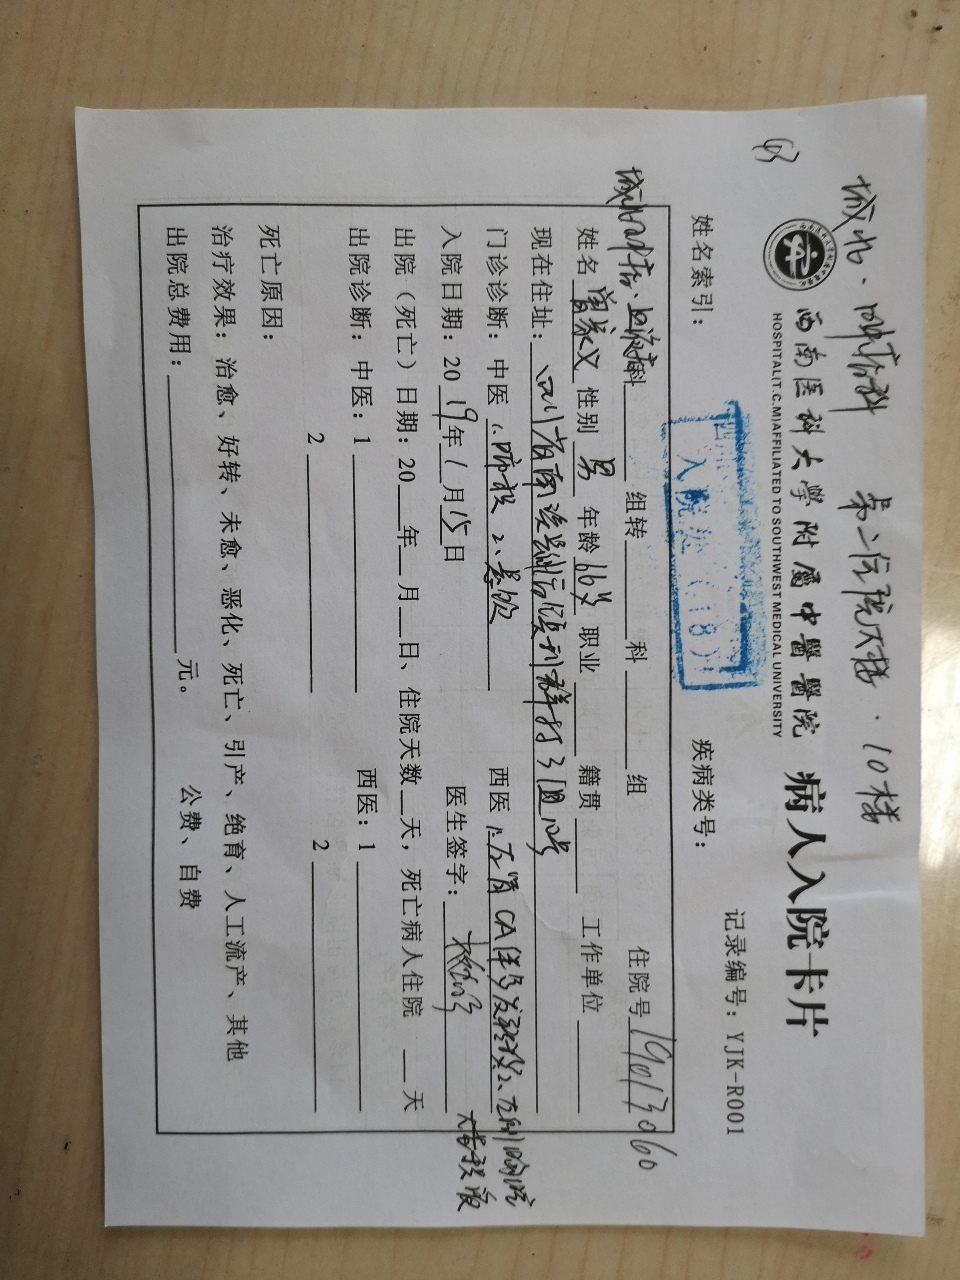 城北·呼吸科 第二住院大楼·10楼
西南医科大学附属中醫醫院 病人入院卡片
HOSPITAL(T.C.M)AFFILIATED TO SOUTHWEST MEDICAL UNIVERSITY
记录编号：YJK-R001
姓名索引： 疾病类号：
入院处(18)
科 组转 科 组 住院号 19013060
姓名 家义 性别 男 年龄 66岁 职业 籍贯 工作单位
现在住址：四川省南溪县 3组
门诊诊断：中医 1. 2.悬饮 西医 1.左肾CA伴多发转移 2.左侧胸腔
大量积液
入院日期：2019年1月15日 医生签字：
出院（死亡）日期：20 年 月 日、住院天数 天，死亡病人住院 天
出院诊断：中医：1 西医：1
2 2
死亡原因：
治疗效果：治愈、好转、未愈、恶化、死亡、引产、绝育、人工流产、其他
出院总费用： 元。 公费、自费